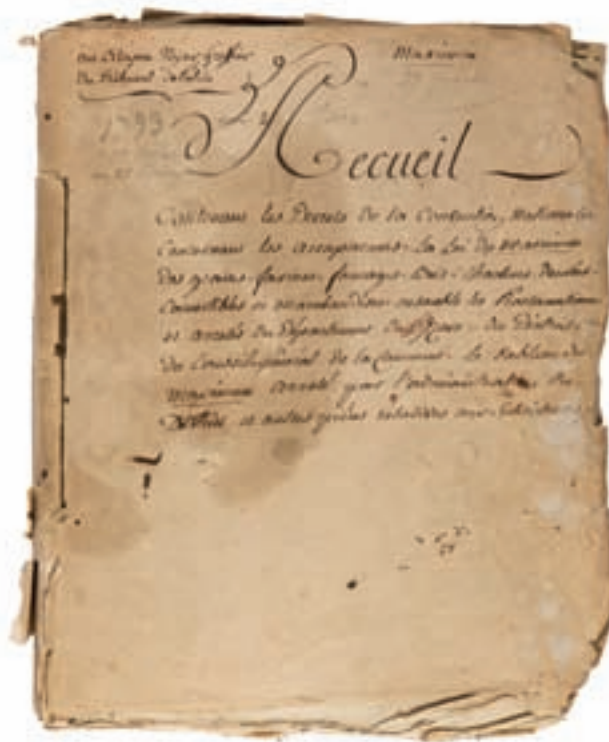 au Citoyen greffier
du Tribunal de Police
Maximum
1793
Recueil
Contenant les Decrets de la Convention Nationale
Concernant les accapareurs. La Loi du maximum
des grains farines fourages
Comestibles et marchandises ensemble les Proclamations
et arretés du Département du District
du Conseil général de la Commune. le tableau du
maximum arreté par l'administration du
District et autres pieces relatives aux